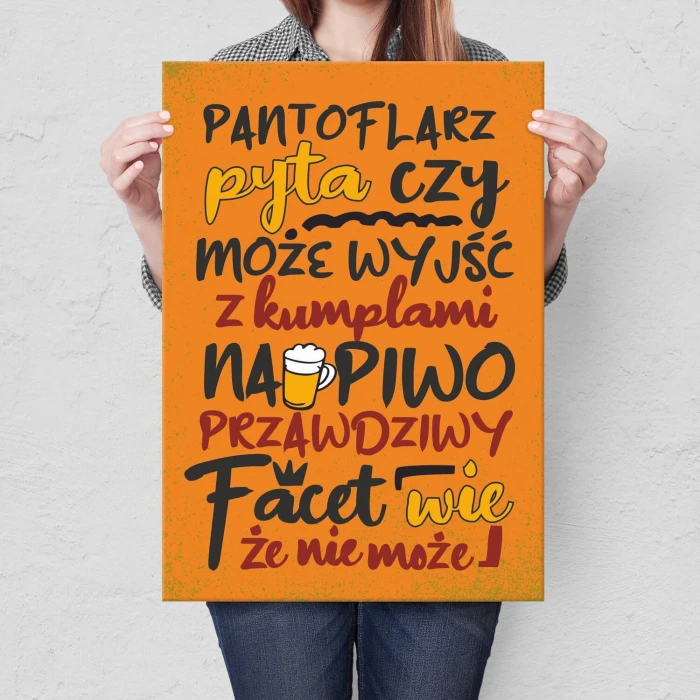 PANTOFLARZ
pyta CZY
MOŻE WYJŚĆ
Z kumplami
NA PIWO
PRZAWDZIWY
Facet wie
że nie może